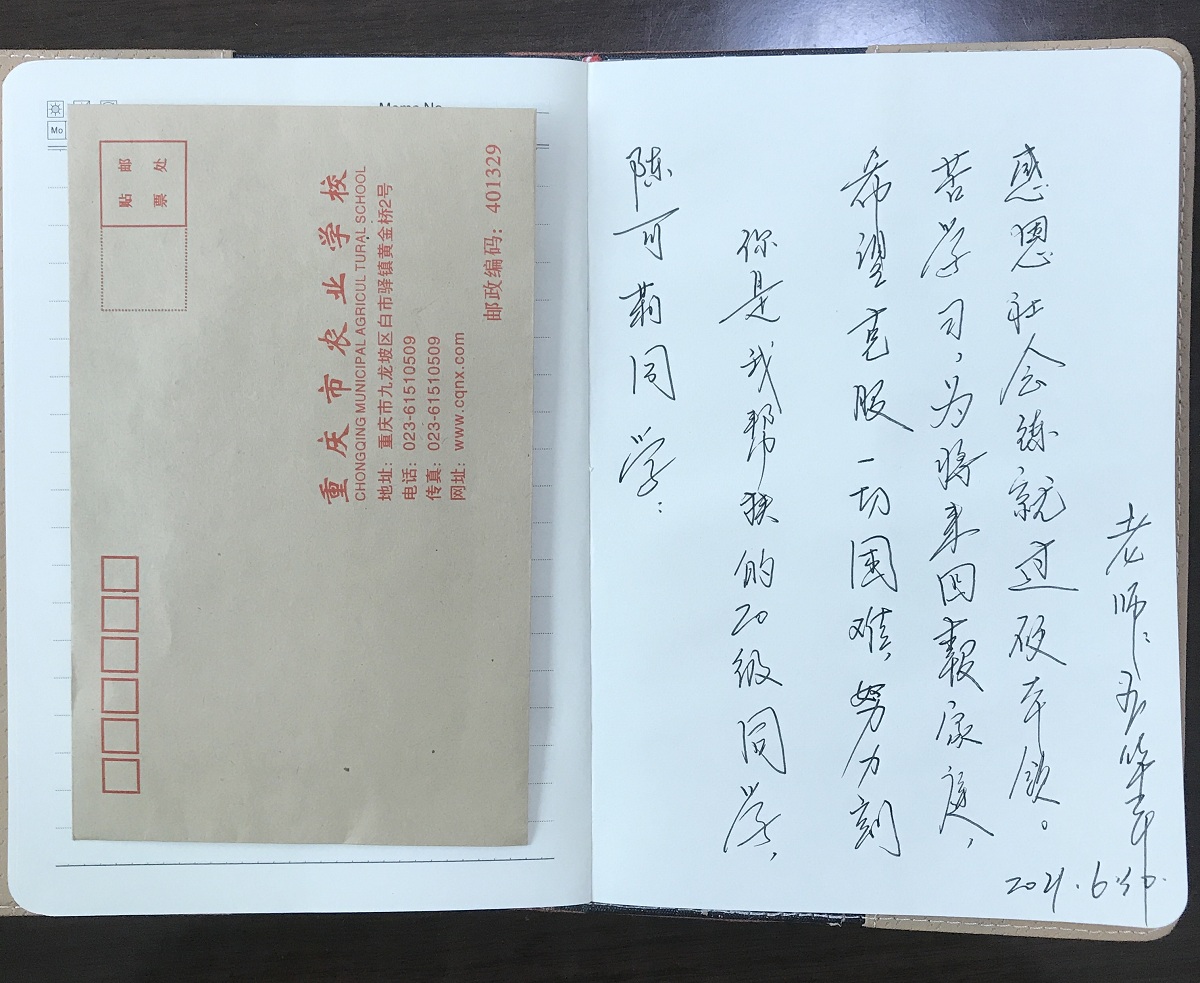 Memo No
Mo
贴 邮
票 处
重庆市农业学校
CHONGQING MUNICIPAL AGRICULTURAL SCHOOL
地址：重庆市九龙坡区白市驿镇黄金桥2号
电话：023-61510509
传真：023-61510509
网址：www.cqnx.com
邮政编码：401329
陈可莉同学：
你是我帮扶的20级同学，
希望克服一切困难，努力刻
苦学习，为将来回報家庭，
感恩社会练就过硬本领。
老师：
2021.6.30.